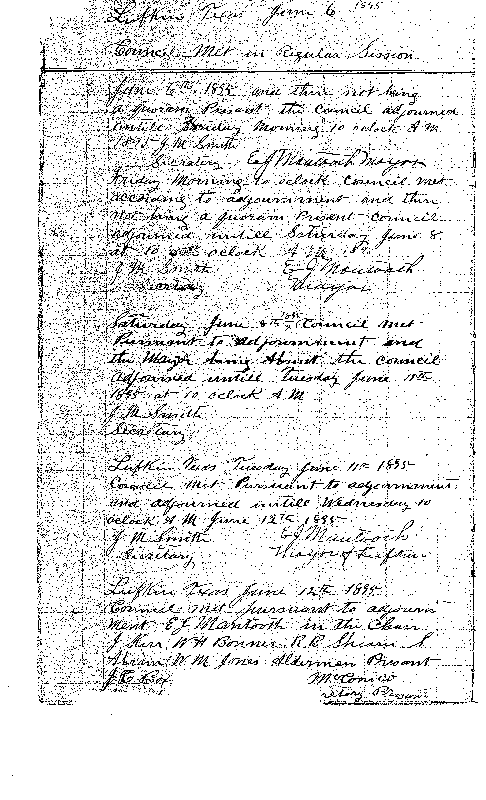 Lufkin Texas June 6 1895
Council Met in Regular Session
June 6th 1895 and their not being
a quoram Present the Council adjourned
untill Friday Morning 10 oclock A M
1895 J. M. Smith
Secretary E J Mantooth Mayor
Friday Morning 10 oclock Council met
according to adjournment and their
not being a quoram Present Council
adjourned untill Saturday June 8
at 10 oclock A M
J. M. Smith E J Mantooth
Secretary Mayor
Saturday June 8th 1895 Council met
Pursuant to adjournment and
the Mayor being Absent the Council
Adjourned untill Tuesday June 11th
1895 at 10 oclock A M
J M Smith
Secretary
Lufkin Texas Tuesday June 11th 1895
Council Met Pursuant to adjournment
and adjourned untill Wednesday 10
oclock A M June 12th 1895
J M Smith E J Mantooth
Secretary Mayor of Lufkin
Lufkin Texas June 12th 1895
Council met pursuant to adjourn
ment E J Mantooth in the Chair
J Kerr W H Bonner R B Shearin S
Abram W M Jones Aldermen Present
McConico
retary Present